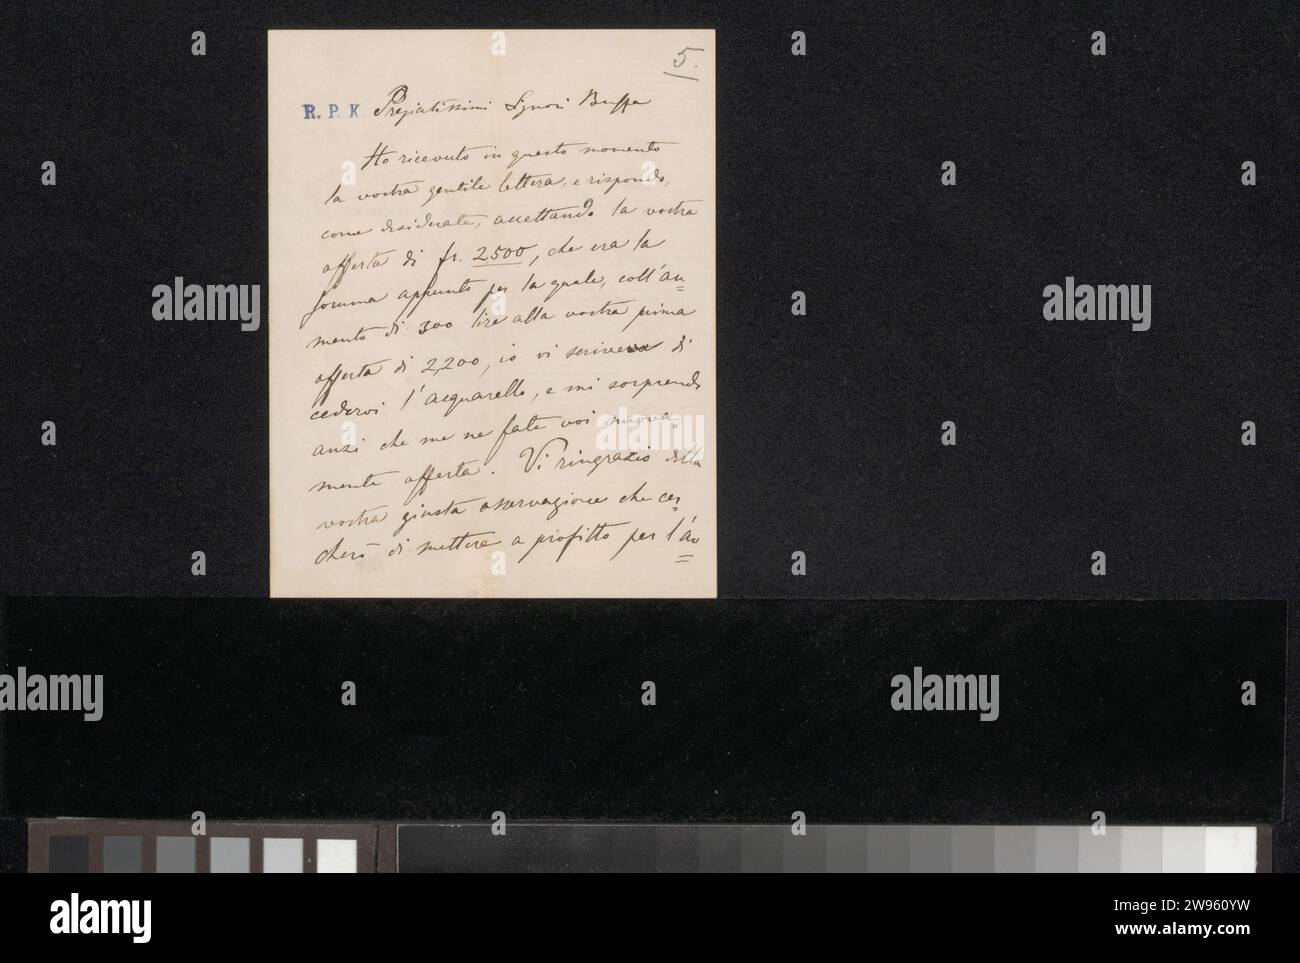 5.
R. P. K. Pregiatissimi Signori Buffa
Ho ricevuto in questo momento
la vostra gentile lettera, e rispondo,
come desiderate, accettando la vostra
offerta di fr. 2500, che era la
somma appunto per la quale, coll'au=
mento di 300 lire alla vostra prima
offerta di 2,200, io vi scriveva di
cedervi l'acquarello, e mi sorprende
anzi che me ne fate voi nuova=
mente offerta. Vi ringrazio della
vostra giusta osservazione che cer=
cherò di mettere a profitto per l'av=
alamy
alamy
alamy
alamy
Image ID: 2W960YW
www.alamy.com